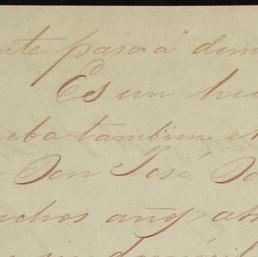 paso á dem
Es un hec
eba tambien e
Don José
uchos años at